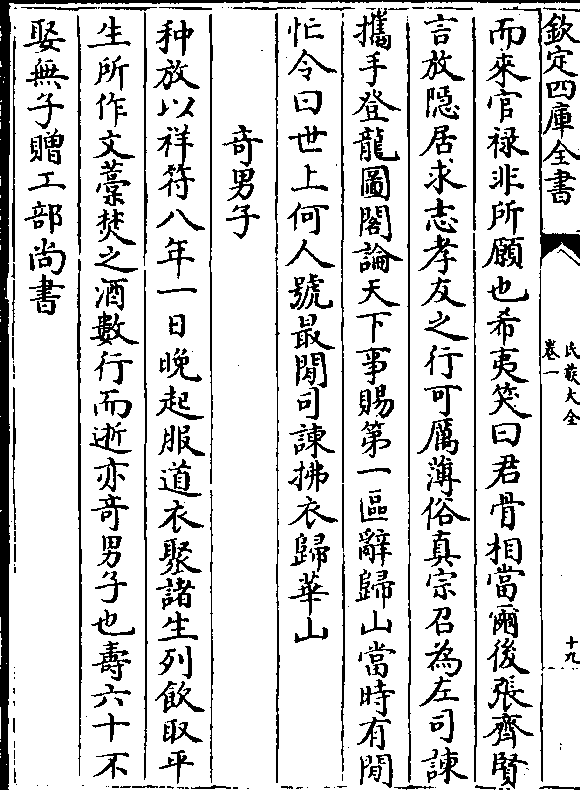 欽定四庫全書
氏族大全
卷一
十九
而來官禄非所願也希夷笑曰君骨相當爾後張齊賢
言放隠居求志孝友之行可厲薄俗真宗召為左司諫
攜手登龍圖閣論天下事賜第一區辭歸山當時有閒
忙令曰世上何人號最閒司諫拂衣歸華山
奇男子
种放以祥符八年一日晚起服道衣聚諸生列飲取平
生所作文藁焚之酒數行而逝亦奇男子也壽六十不
娶無子贈工部尚書